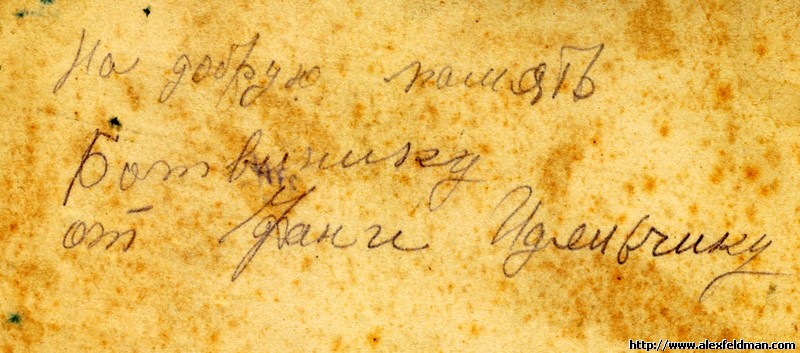 На добрую память
Ботвинику
от Фани Идельчику
http://www.alexfeldman.com